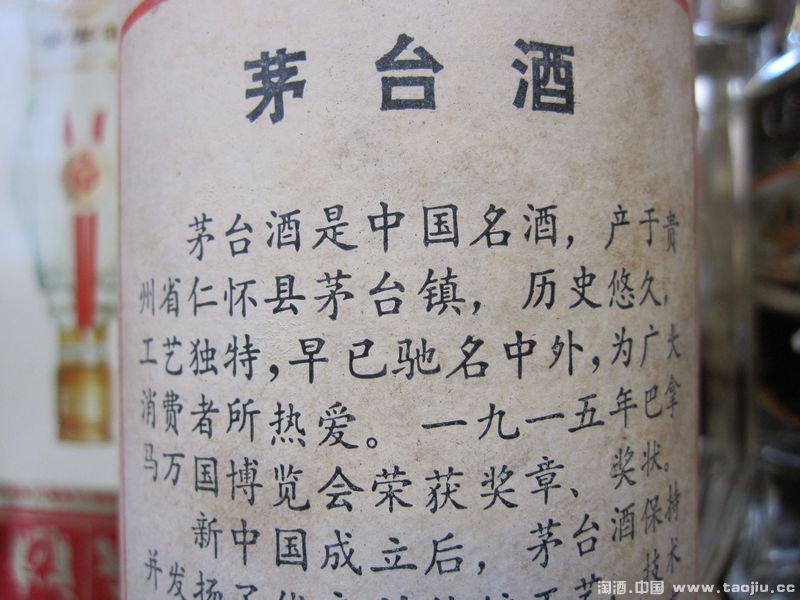 茅台酒
茅台酒是中国名酒，产于贵
州省仁怀县茅台镇，历史悠久，
工艺独特，早已驰名中外，为广大
消费者所热爱。一九一五年巴拿
马万国博览会荣获奖章、奖状。
新中国成立后，茅台酒保持
并发扬了
技术
淘酒.中国 www.taojiu.cc